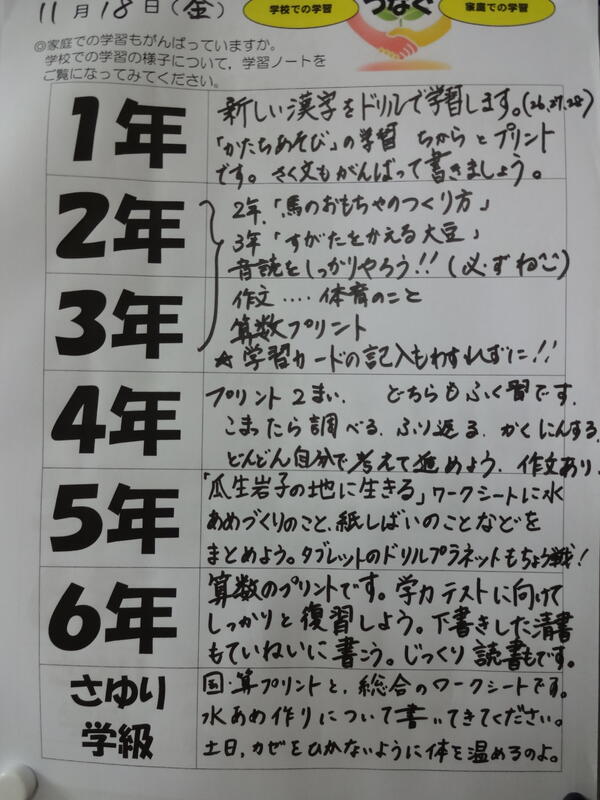 11月18日(金)
学校での学習
つなぐ
家庭での学習
◎家庭での学習もがんばっていますか。
学校での学習の様子について,学習ノートを
ご覧になってみてください。
1年
新しい漢字をドリルで学習します。(26,27,28)
「かたちあそび」の学習 ちからとプリント
です。さく文もがんばって書きましょう。
2年
2年「馬のおもちゃのつくり方」
3年「すがたをかえる大豆」
音読をしっかりやろう!!(必ずね)
3年
作文‥‥体育のこと
算数プリント
★学習カードの記入もわすれずに!!
4年
プリント2まい. どちらもふく習です.
こまったら調べる.ふり返る.かくにんする.
どんどん自分で考えて進めよう.作文あり.
5年
「瓜生岩子の地に生きる」ワークシートに水
あめづくりのこと、紙しばいのことなどを
まとめよう。タブレットのドリルプラネットもちょう戦!
6年
算数のプリントです。学力テストに向けて
しっかりと復習しよう。下書きした清書
もていねいに書こう。じっくり読書もです。
さゆり
学級
国・算プリントと,総合のワークシートです。
水あめ作りについて書いてきてください。
土日,カゼをひかないように体を温めるのよ。